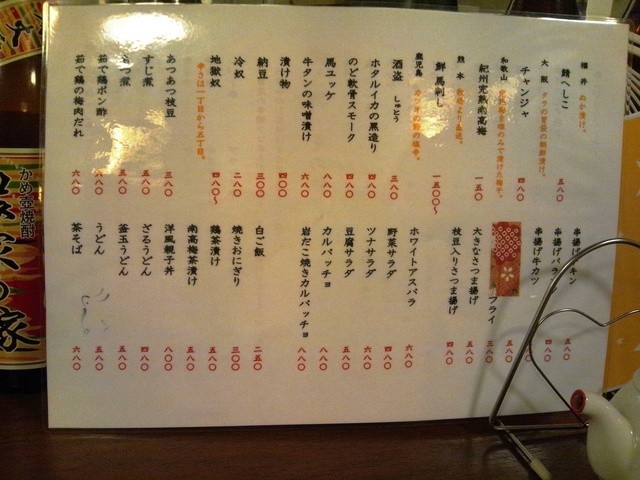 福井 ぬか漬け。
鯖へしこ 五八〇
大阪 タラの胃袋の朝鮮漬け。
チャンジャ 四八〇
和歌山
紀州完熟南高梅 一五〇
熊本
鮮馬刺し 一五〇〇〜
鹿児島
酒盗 しゅとう 三八〇
ホタルイカの黒造り 四八〇
のど軟骨スモーク 四八〇
馬ユッケ 八八〇
牛タンの味噌漬け 六八〇
漬け物 四〇〇
納豆 三〇〇
冷奴 二八〇
地獄奴 四八〇〜
辛さは一丁目から五丁目。
あつあつ枝豆 三八〇
すじ煮 五八〇
つ煮 五八〇
茹で鶏ポン酢 六八〇
茹で鶏の梅肉だれ 六八〇
串揚げ
串揚げバラ 五八〇
串揚げ牛カツ 四八〇
フライ
大きなさつま揚げ 五八〇
枝豆入りさつま揚げ 四八〇
ホワイトアスパラ 六八〇
野菜サラダ 四八〇
ツナサラダ 六八〇
豆腐サラダ 五八〇
カルパッチョ 八八〇
岩だこ焼きカルパッチョ 八八〇
白ご飯 二五〇
焼きおにぎり 三〇〇
鶏茶漬け 五八〇
南高梅茶漬け 五八〇
洋風親子丼 八八〇
ざるうどん 四八〇
釜玉うどん 五八〇
うどん 五八〇
茶そば 六八〇
かめ壺焼酎
の家